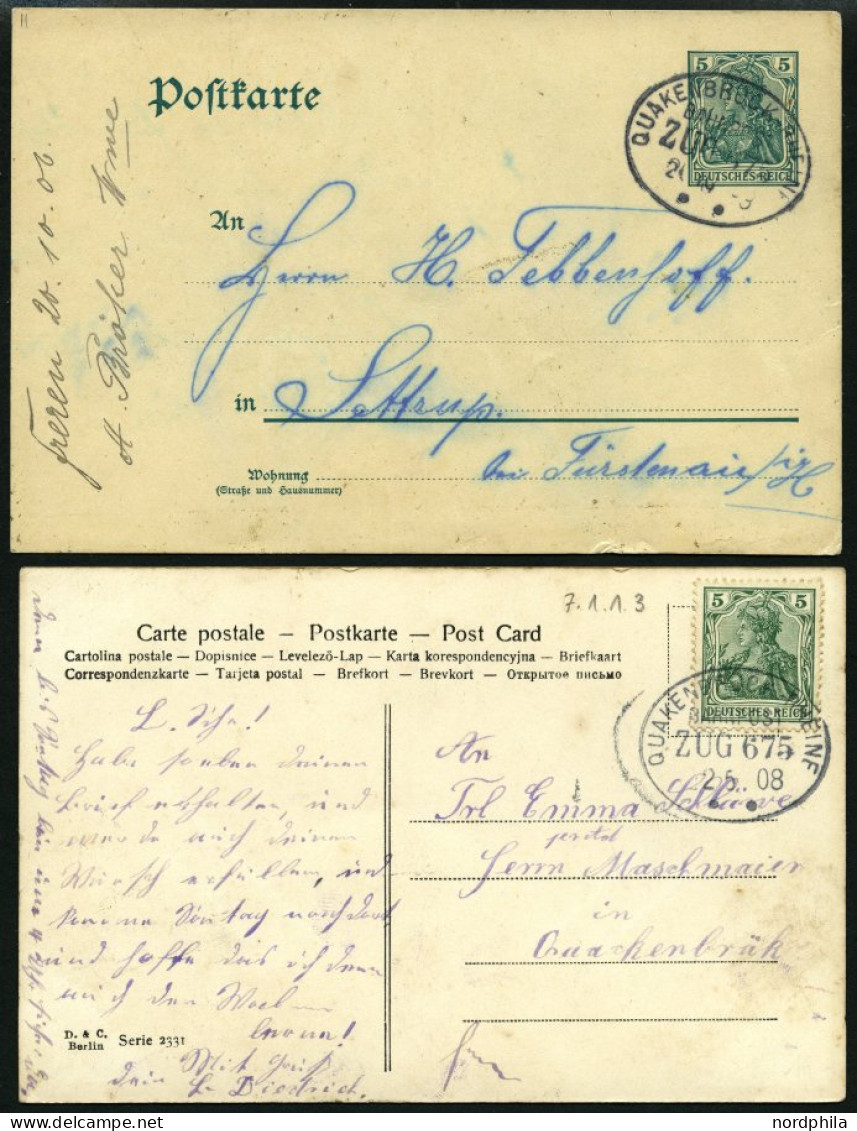 Postkarte
5 5
DEUTSCHES REICH
QUAKENBRÜCK RHEINE
ZUG
Freren 20.10.06.
A. Bröker Wwe
An
Herrn H. Tebbenhoff.
in Settrup.
bei Fürstenau i/H
Wohnung
(Straße und Hausnummer)
7.1.1.3
Carte postale – Postkarte – Post Card
Cartolina postale – Dopisnice – Levelező-Lap – Karta korespondencyjna – Briefkaart
Correspondenzkarte – Tarjeta postal – Brefkort – Brevkort – Открытое письмо
5 5
DEUTSCHES REICH
QUAKENBRÜCK RHEINE
BAHNPOST
ZUG 675
2.5. 08
L.
Habe soeben deinen
Brief erhalten, und
werde auch deinen
Wunsch erfüllen, und
komme Sontag nach dort,
und hoffe das ich dann
auch den
Mit Gruß
dein
Diedrich.
An
Frl Emma
Herrn Maschmaier
in
Quackenbrük
D. & C.
Berlin
Serie 2331
nordphila